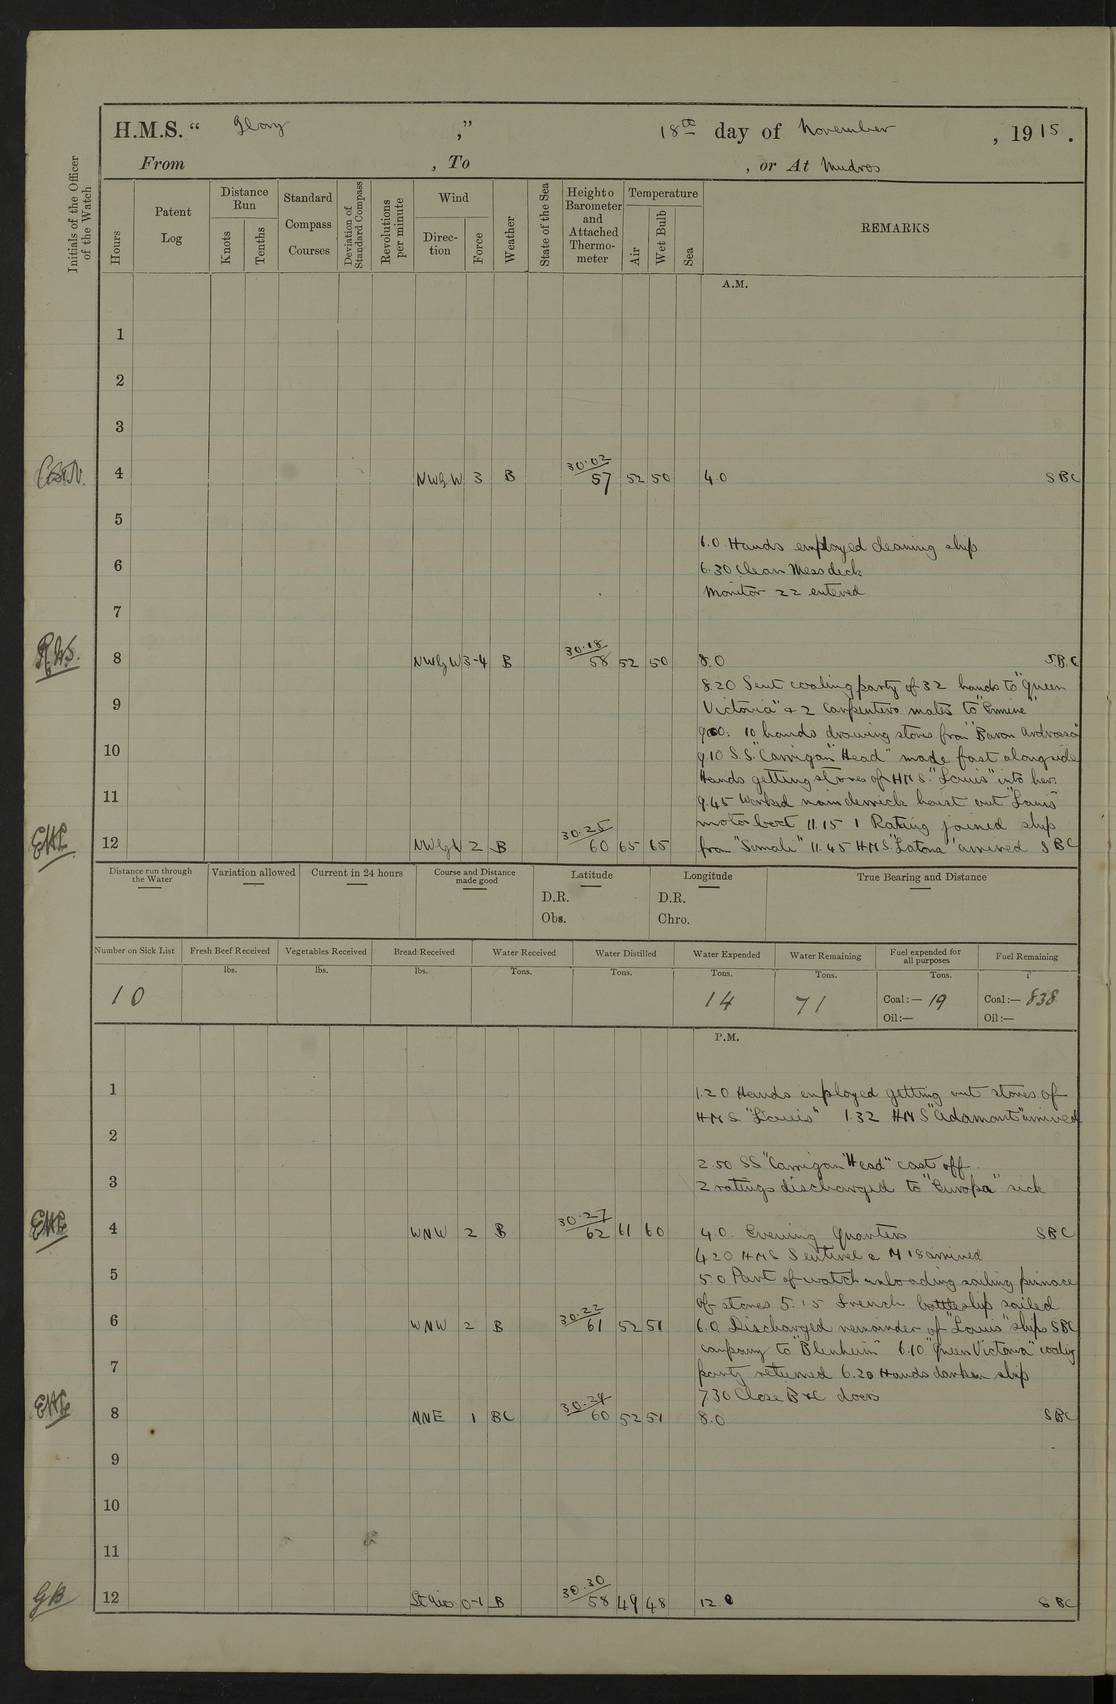 H.M.S. “ Glory ,” 18th day of November , 1915.
From , To , or At Mudros
Initials of the Officer of the Watch
Hours
Patent Log
Distance Run
Knots
Tenths
Standard Compass Courses
Deviation of Standard Compass
Revolutions per minute
Wind
Direc-tion
Force
Weather
State of the Sea
Height o Barometer and Attached Thermo-meter
Temperature
Air
Wet Bulb
Sea
REMARKS
A.M.
1
2
3
4 NWbyW 3 B 30.02 57 52 50 4.0 SBC
5
6.0 Hands employed cleaning ship
6 6.30 Clean Mess deck
Monitor 22 entered
7
R.W.S. 8 NWbyW 3-4 B 30.18 58 52 50 8.0 SBC
8.20 Sent coaling party of 32 hands to "Queen
9 Victoria" & 2 Carpenters mates to "Ermine"
9.0: 10 hands drawing stores from "Baron Ardrossan"
10 9.10 S.S. "Carrigan Head" made fast alongside
Hands getting stores of HMS. "Louis" into her.
11 9.45 Worked main derrick hoist out "Louis"
motor boat 11.15 1 Rating joined ship
12 NWbyW 2 B 30.25 60 65 65 from "Somali" 11.45 HMS "Latona" arrived SBC
Distance run through the Water
Variation allowed
Current in 24 hours
Course and Distance made good
Latitude
D.R.
Obs.
Longitude
D.R.
Chro.
True Bearing and Distance
Number on Sick List
Fresh Beef Received
Vegetables Received
Bread Received
Water Received
Water Distilled
Water Expended
Water Remaining
Fuel expended for all purposes
Fuel Remaining
lbs. lbs. lbs. Tons. Tons. Tons. Tons. Tons. T
10 14 71 Coal:— 19 Coal:— 838
Oil:— Oil:—
P.M.
1 1.20 Hands employed getting out stores of
HMS "Louis" 1.32 HMS "Adamant" arrived
2
2.50 SS "Carrigan Head" cast off
3 2 ratings discharged to "Europa" sick
4 WNW 2 B 30.27 62 61 60 4.0 Evening Quarters SBC
4.20 HMS Sentinel & M 18 arrived
5 5.0 Part of watch unloading sailing pinnace
of stores 5.15 French battleship sailed
6 WNW 2 B 30.22 61 52 51 6.0 Discharged remainder of "Louis" ships SBC
company to "Blenheim" 6.10 "Queen Victoria" coaling
7 party returned 6.20 Hands darken ship
7.30 Close B & C doors
8 NNE 1 BC 30.24 60 52 51 8.0 SBC
9
10
11
GB 12 St Airs 0-1 B 30.30 58 49 48 12.0 SBC